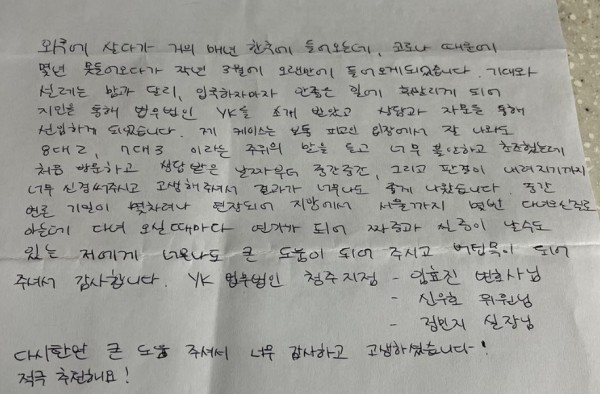 외국에 살다가 거의 매년 한국에 들어오는데, 코로나 때문에
몇년 못들어오다가 작년 3월에 오랜만에 들어오게되었습니다. 기대와
설레는 맘과 달리, 입국하자마자 안좋은 일에 휘말리게 되어
지인을 통해 법무법인 YK를 소개 받았고 상담과 자문을 통해
선임하게 되었습니다. 제 케이스는 보통 피고인 입장에서 잘 나와도
8대 2, 7대 3 이라는 주위의 말을 듣고 너무 불안하고 초조했는데
처음 방문하고 상담 받은 날짜부터 중간중간, 그리고 판결이 내려지기까지
너무 신경써주시고 고생해주셔서 결과가 너무나도 좋게 나왔습니다. 중간
변론 기일이 몇차례나 연장되어 지방에서 서울까지 몇번 다녀오신걸로
아는데 다녀 오실때마다 연기가 되어 짜증과 실증이 날수도
있는 저에게 너무나도 큰 도움이 되어 주시고 버팀목이 되어
주셔서 감사합니다. YK 법무법인 청주지점 - 임효진 변호사님
- 신우호 위원님
- 정민지 실장님
다시한번 큰 도움 주셔서 너무 감사하고 고생하셨습니다!
적극 추천해요!